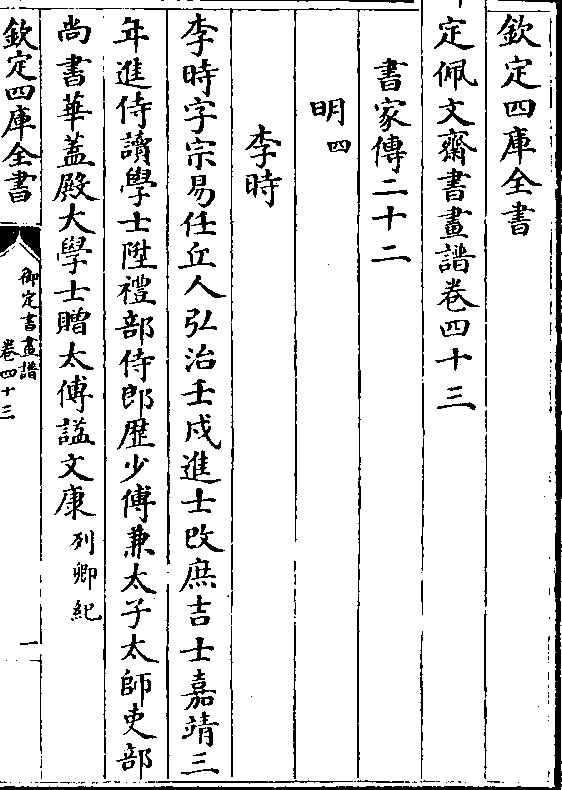 欽定四庫全書
定佩文齋書畫譜卷四十三
書家傳二十二
明四
李時
李時字宗易任丘人弘治壬戌進士改庶吉士嘉靖三
年進侍讀學士陞禮部侍郎歷少傅兼太子太師吏部
尚書華蓋殿大學士贈太傅諡文康列卿紀
欽定四庫全書
御定書畫譜
卷四十三
一